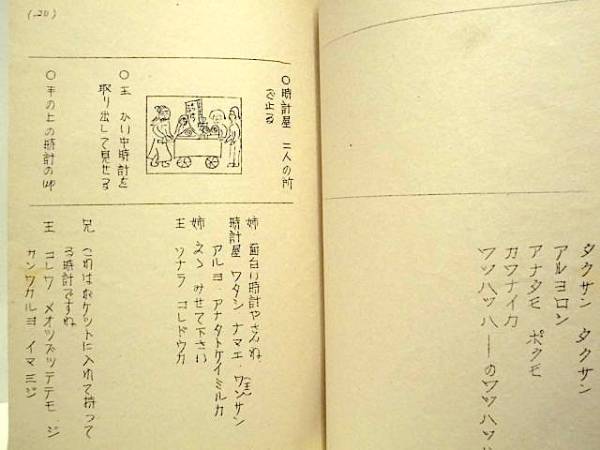 タクサン タクサン
アルヨロン
アナタモ ボクモ
カワナイカ
ワッハッハ——のワッハッハ
(20)
〇時計屋 二人の所
で止る
〇王 かい中時計を
取り出して見せる
〇手の上の時計のup
姉 面白い時計やさんね。
時計屋 ワタシ ナマエ、ワンサン(王)
アルヨ アナタトケイミルカ
姉 えゝ みせて下さい
王 ソナラ コレドウカ
兄 これはポケットに入れて持って
る時計ですね
王 コレワ メオツブッテテモ、ジ
カンワカルヨ イマ三ジ